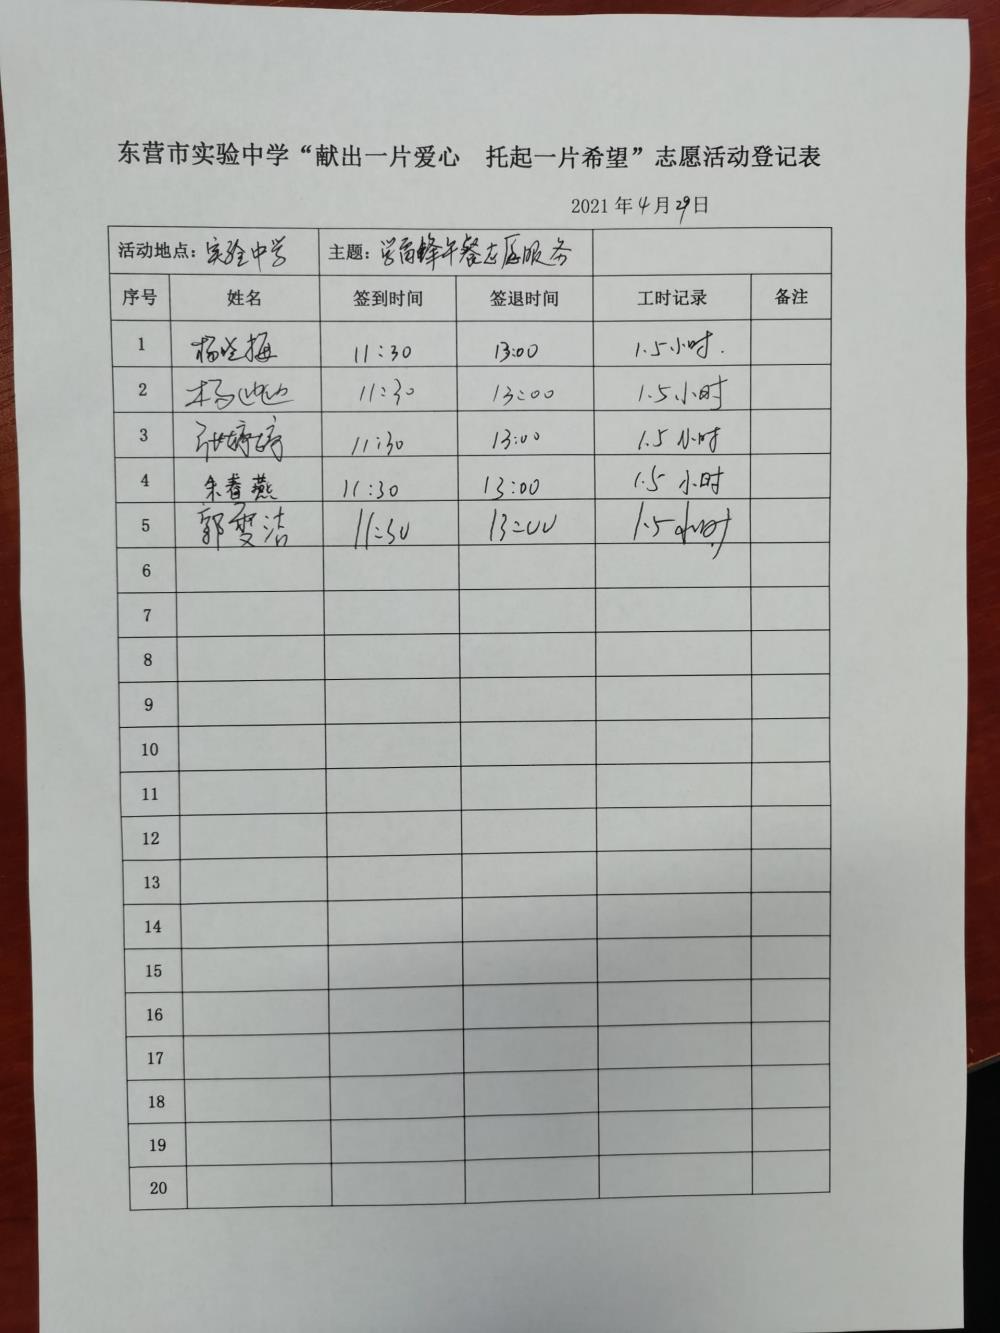 东营市实验中学“献出一片爱心 托起一片希望”志愿活动登记表
2021 年 4 月 29 日
活动地点：实验中学 主题：学雷锋午餐志愿服务
序号 姓名 签到时间 签退时间 工时记录 备注
1 杨晓梅 11:30 13:00 1.5小时.
2 杨 11:30 13:00 1.5小时
3 张婷婷 11:30 13:00 1.5小时
4 朱春燕 11:30 13:00 1.5小时
5 郭雯洁 11:30 13:00 1.5小时
6
7
8
9
10
11
12
13
14
15
16
17
18
19
20